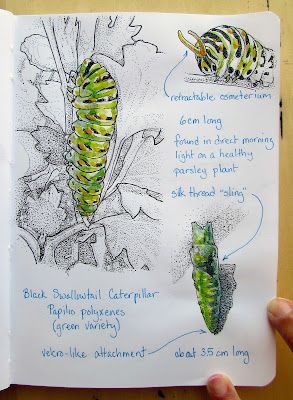 retractable osmeterium
6cm long
found in direct morning
light on a healthy
parsley plant
silk thread "sling"
Black Swallowtail Caterpillar
Papilio polyxenes
(green variety)
velcro-like attachment
about 3.5 cm long